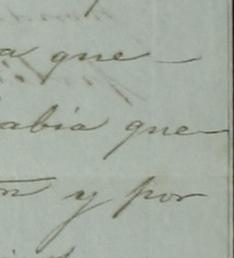 a que
abia que
on y por